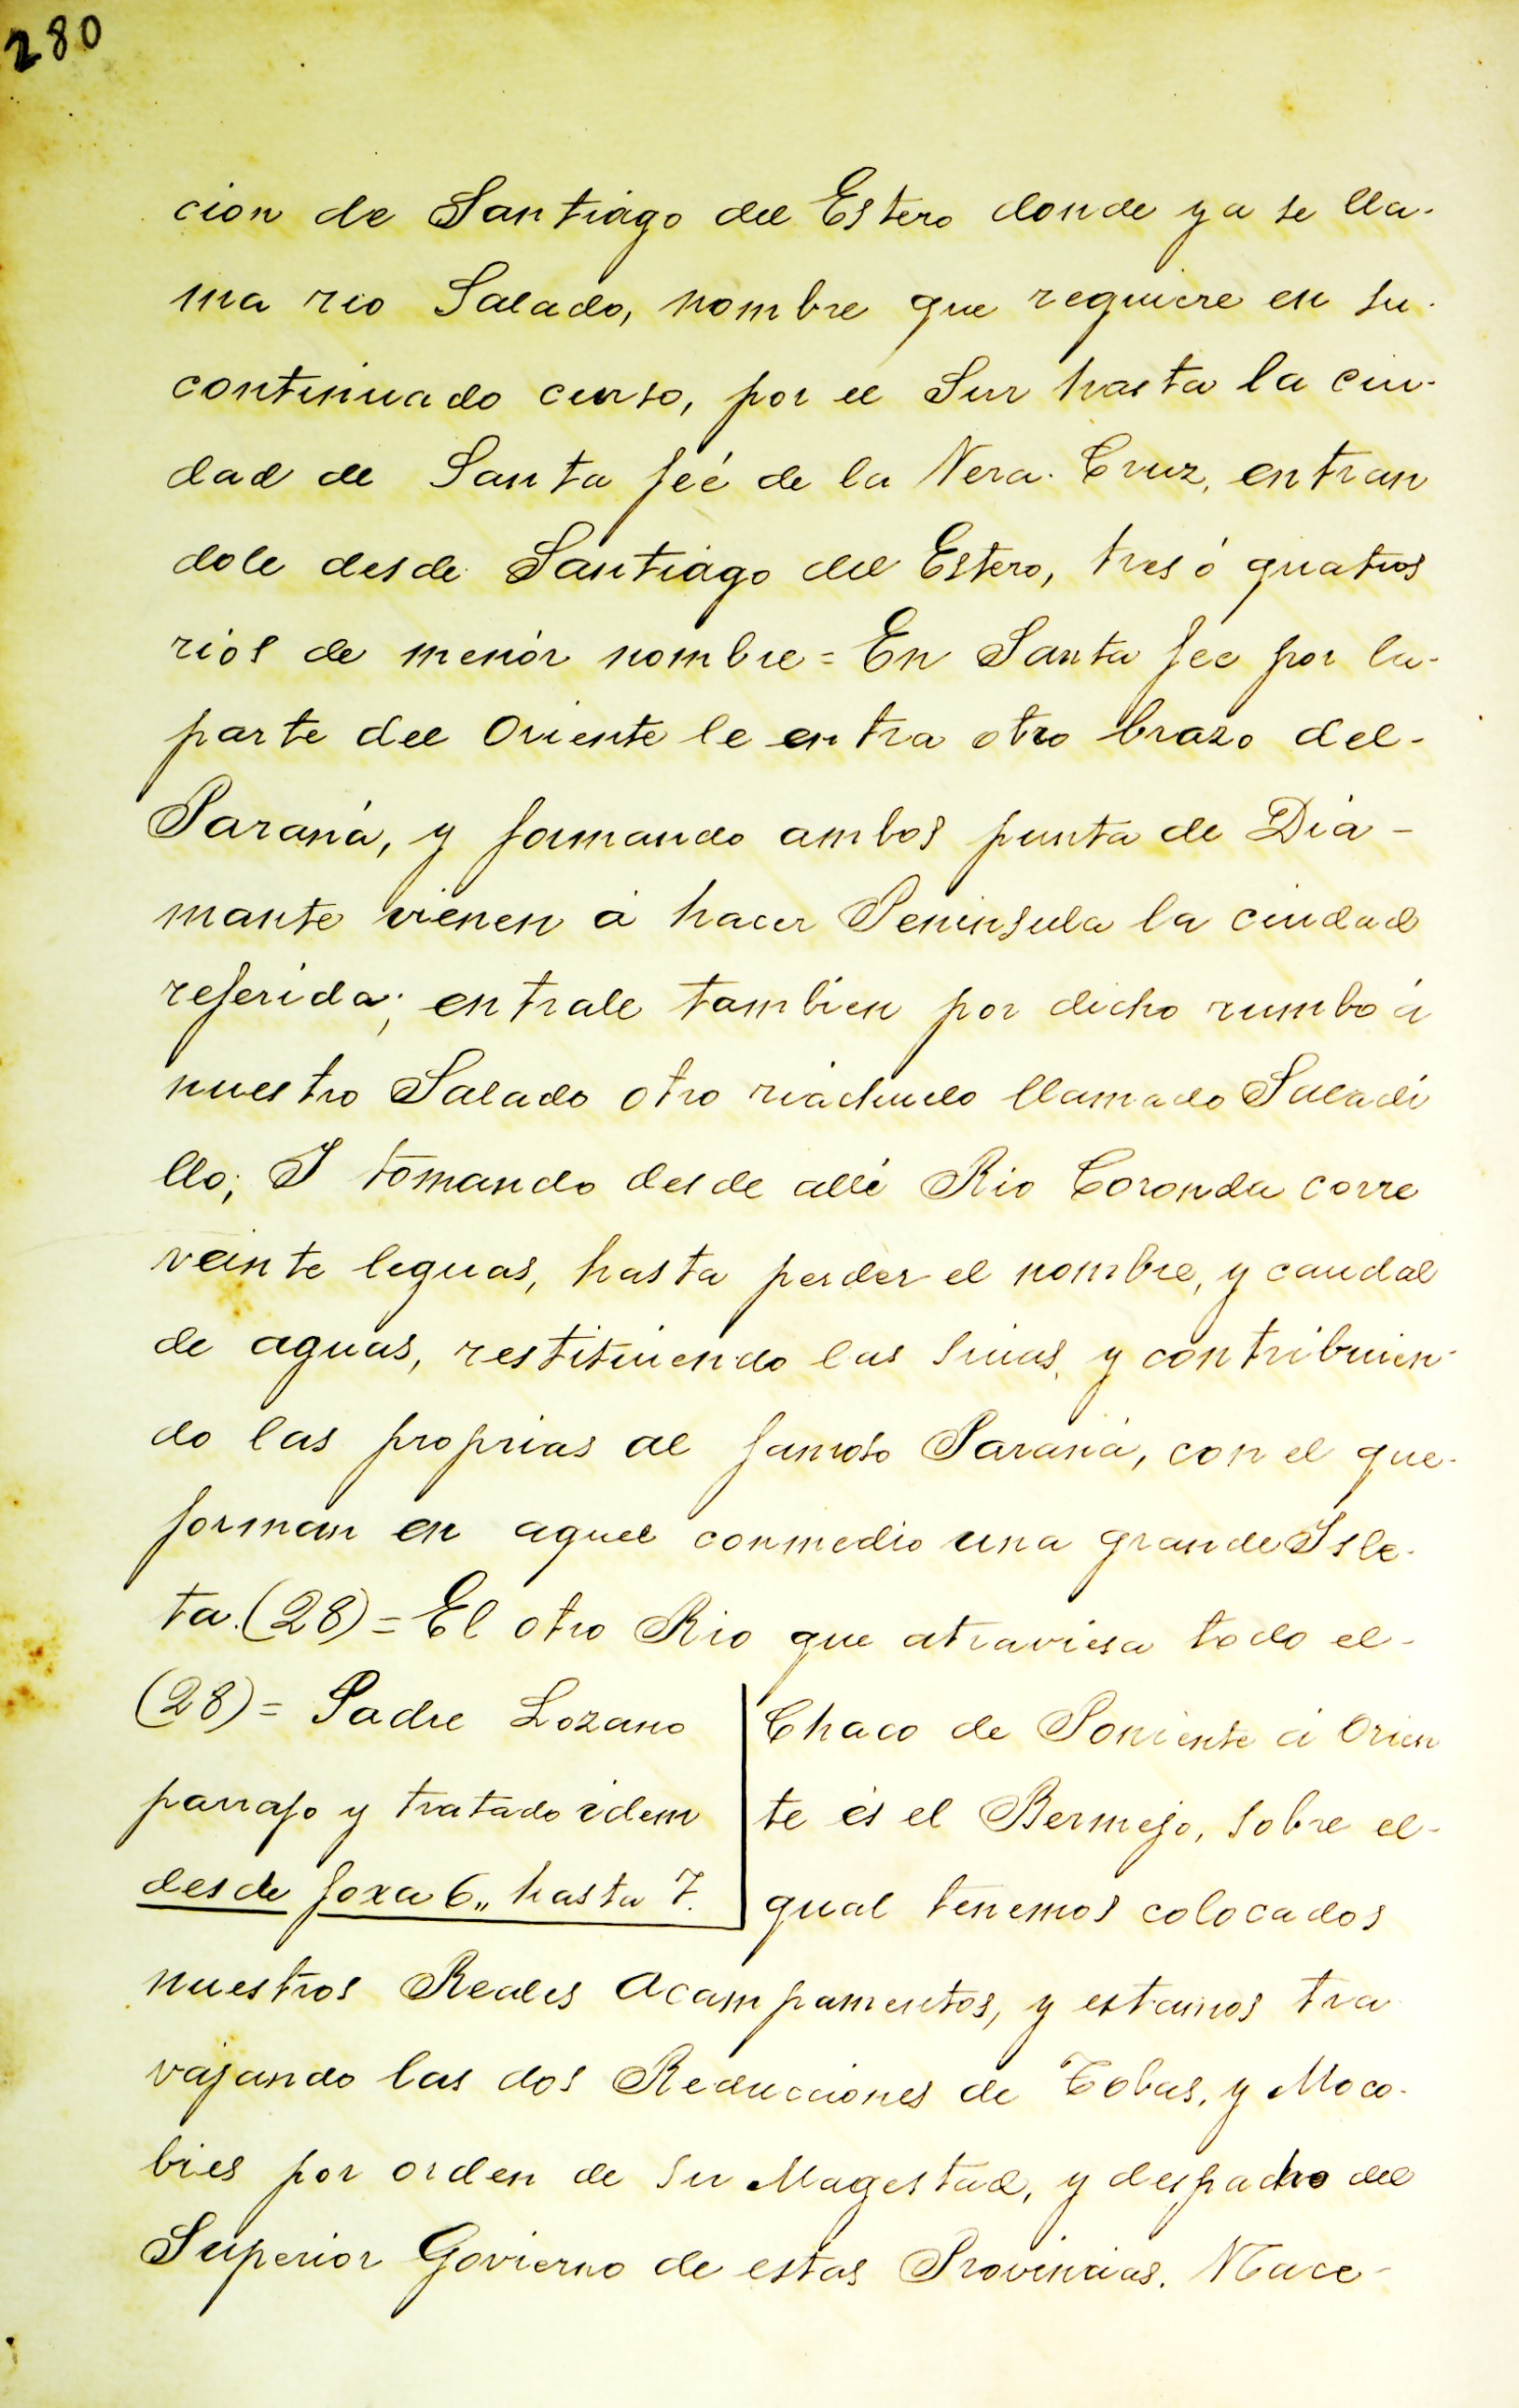 280
cion de Santiago del Estero donde ya se lla-
ma rio Salado, nombre que requiere en su-
continuado curso, por el Sur hasta la ciu-
dad de Santa feé de la Vera Cruz, entran
dole desde Santiago del Estero, tres ó quatros
rios de menór nombre = En Santa fee por la-
parte del Oriente le entra otro brazo del-
Paraná, y formando ambos punta de Dia-
mante vienen á hacer Peninsula la ciudad
referida; entrale tambien por dicho rumbo á
nuestro Salado otro riachuelo llamado Saladi
llo; I tomando desde allí Rio Coronda corre
veinte leguas, hasta perder el nombre, y caudal
de aguas, restituiendo las suias, y contribuien-
do las proprias al famoso Paraná, con el que-
forman en aquel conmedio una grande Isle-
ta. (28) = El otro Rio que atraviesa todo el-
(28) = Padre Lozano
parrafo y tratado idem
desde foxa 6,, hasta 7.
Chaco de Poniente á Orien
te és el Bermejo, sobre el-
qual tenemos colocados
nuestros Reales Acampamentos, y estamos tra
vajando las dos Reducciones de Tobas, y Moco-
bies por orden de su Magestad, y despacho del
Superior Govierno de estas Provincias. Nace-